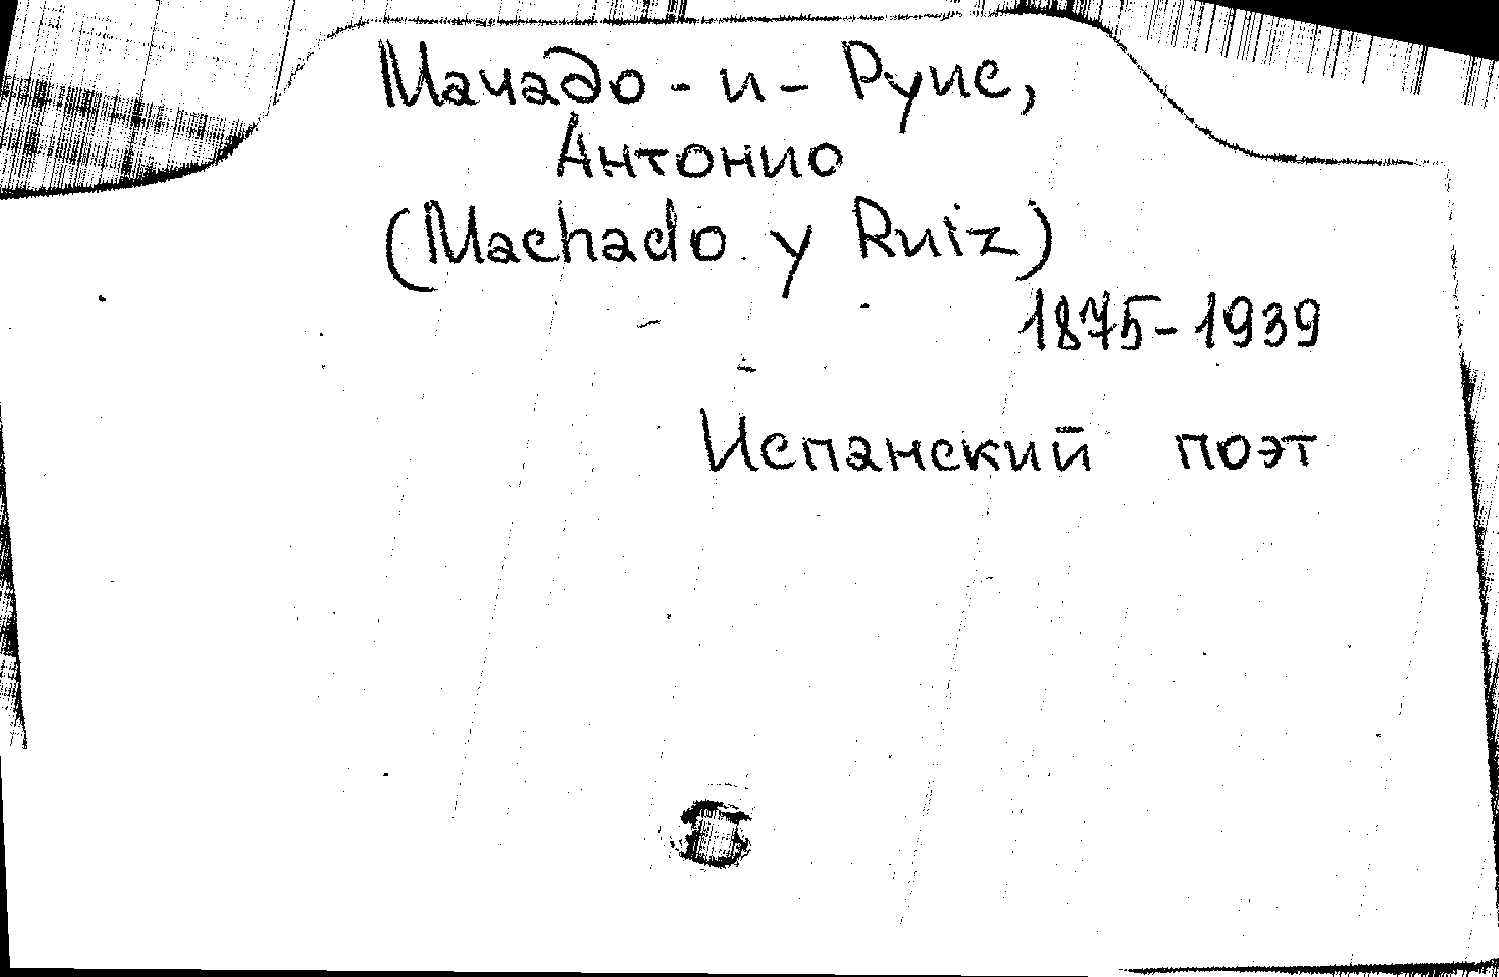 Мачадо - и - Руис,
Антонио
(Machado y Ruiz)
1875-1939
Испанский поэт